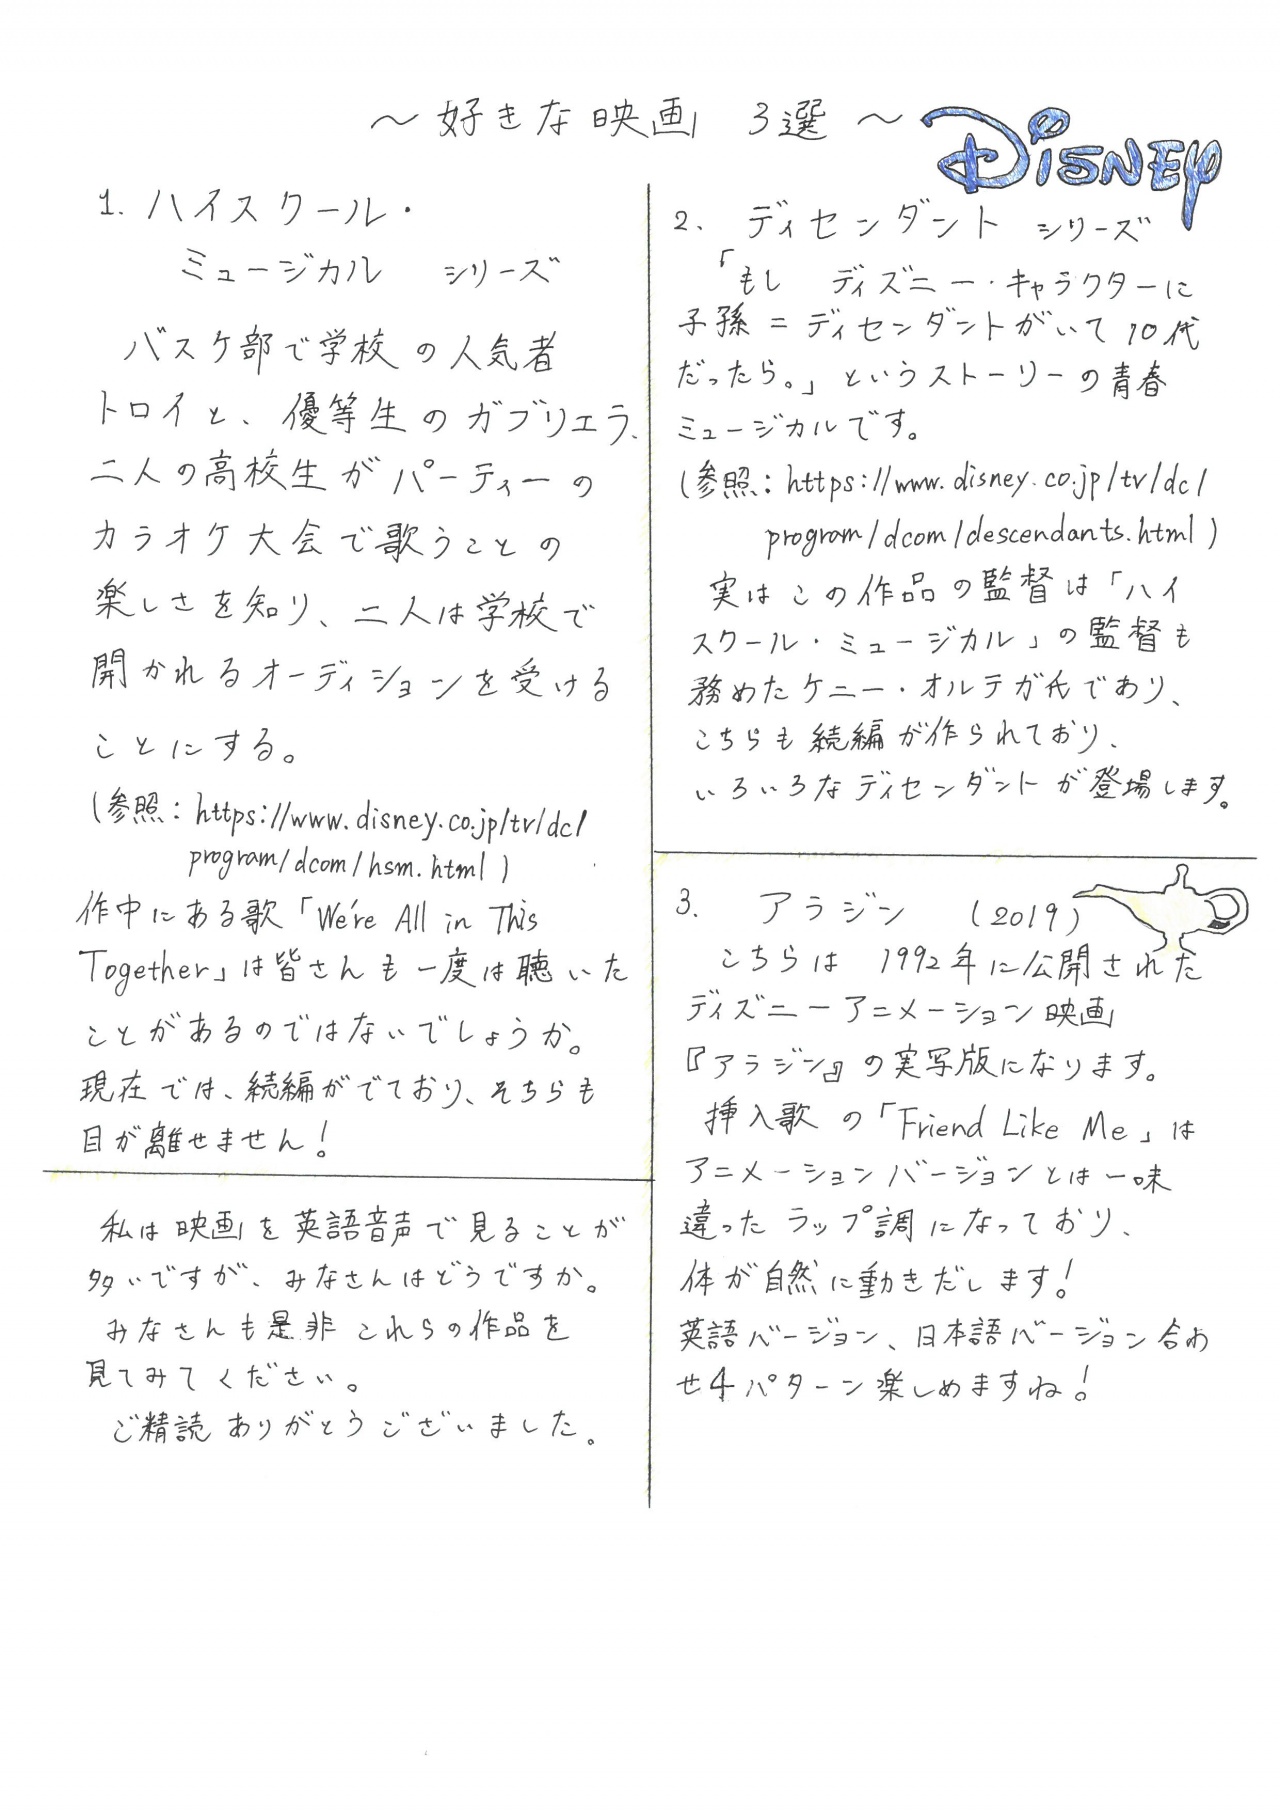 ～好きな映画 3選～
DISNEY
1. ハイスクール・
ミュージカル シリーズ
バスケ部で学校の人気者
トロイと、優等生のガブリエラ、
二人の高校生がパーティーの
カラオケ大会で歌うことの
楽しさを知り、二人は学校で
開かれるオーディションを受ける
ことにする。
(参照:https://www.disney.co.jp/tv/dc/
program/dcom/hsm.html)
作中にある歌「We're All in This
Together」は皆さんも一度は聴いた
ことがあるのではないでしょうか。
現在では、続編がでており、そちらも
目が離せません!
2. ディセンダント シリーズ
「もし ディズニー・キャラクターに
子孫=ディセンダントがいて10代
だったら。」というストーリーの青春
ミュージカルです。
(参照:https://www.disney.co.jp/tv/dc/
program/dcom/descendants.html)
実はこの作品の監督は「ハイ
スクール・ミュージカル」の監督も
務めたケニー・オルテガ氏であり、
こちらも続編が作られており、
いろいろなディセンダントが登場します。
3. アラジン (2019)
こちらは 1992年に公開された
ディズニーアニメーション映画
『アラジン』の実写版になります。
挿入歌の「Friend Like Me」は
アニメーションバージョンとは一味
違ったラップ調になっており、
体が自然に動きだします!
英語バージョン、日本語バージョン合わ
せ4パターン楽しめますね!
私は映画を英語音声で見ることが
多いですが、みなさんはどうですか。
みなさんも是非これらの作品を
見てみてください。
ご精読ありがとうございました。